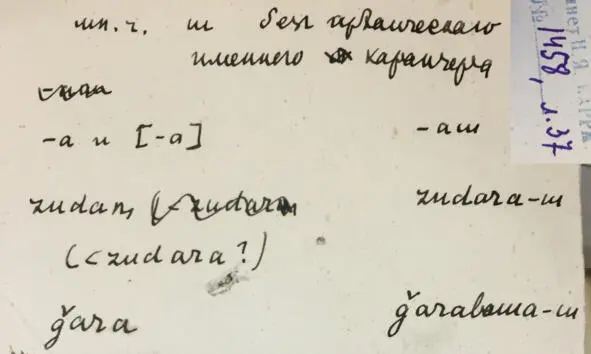 мн. ч. ш без архаического
именного характера
-а и [-а] -аш
zudan,
(< zudara?) zudara-ш
ğara ğarabаша-ш
№ 1458, л. 37